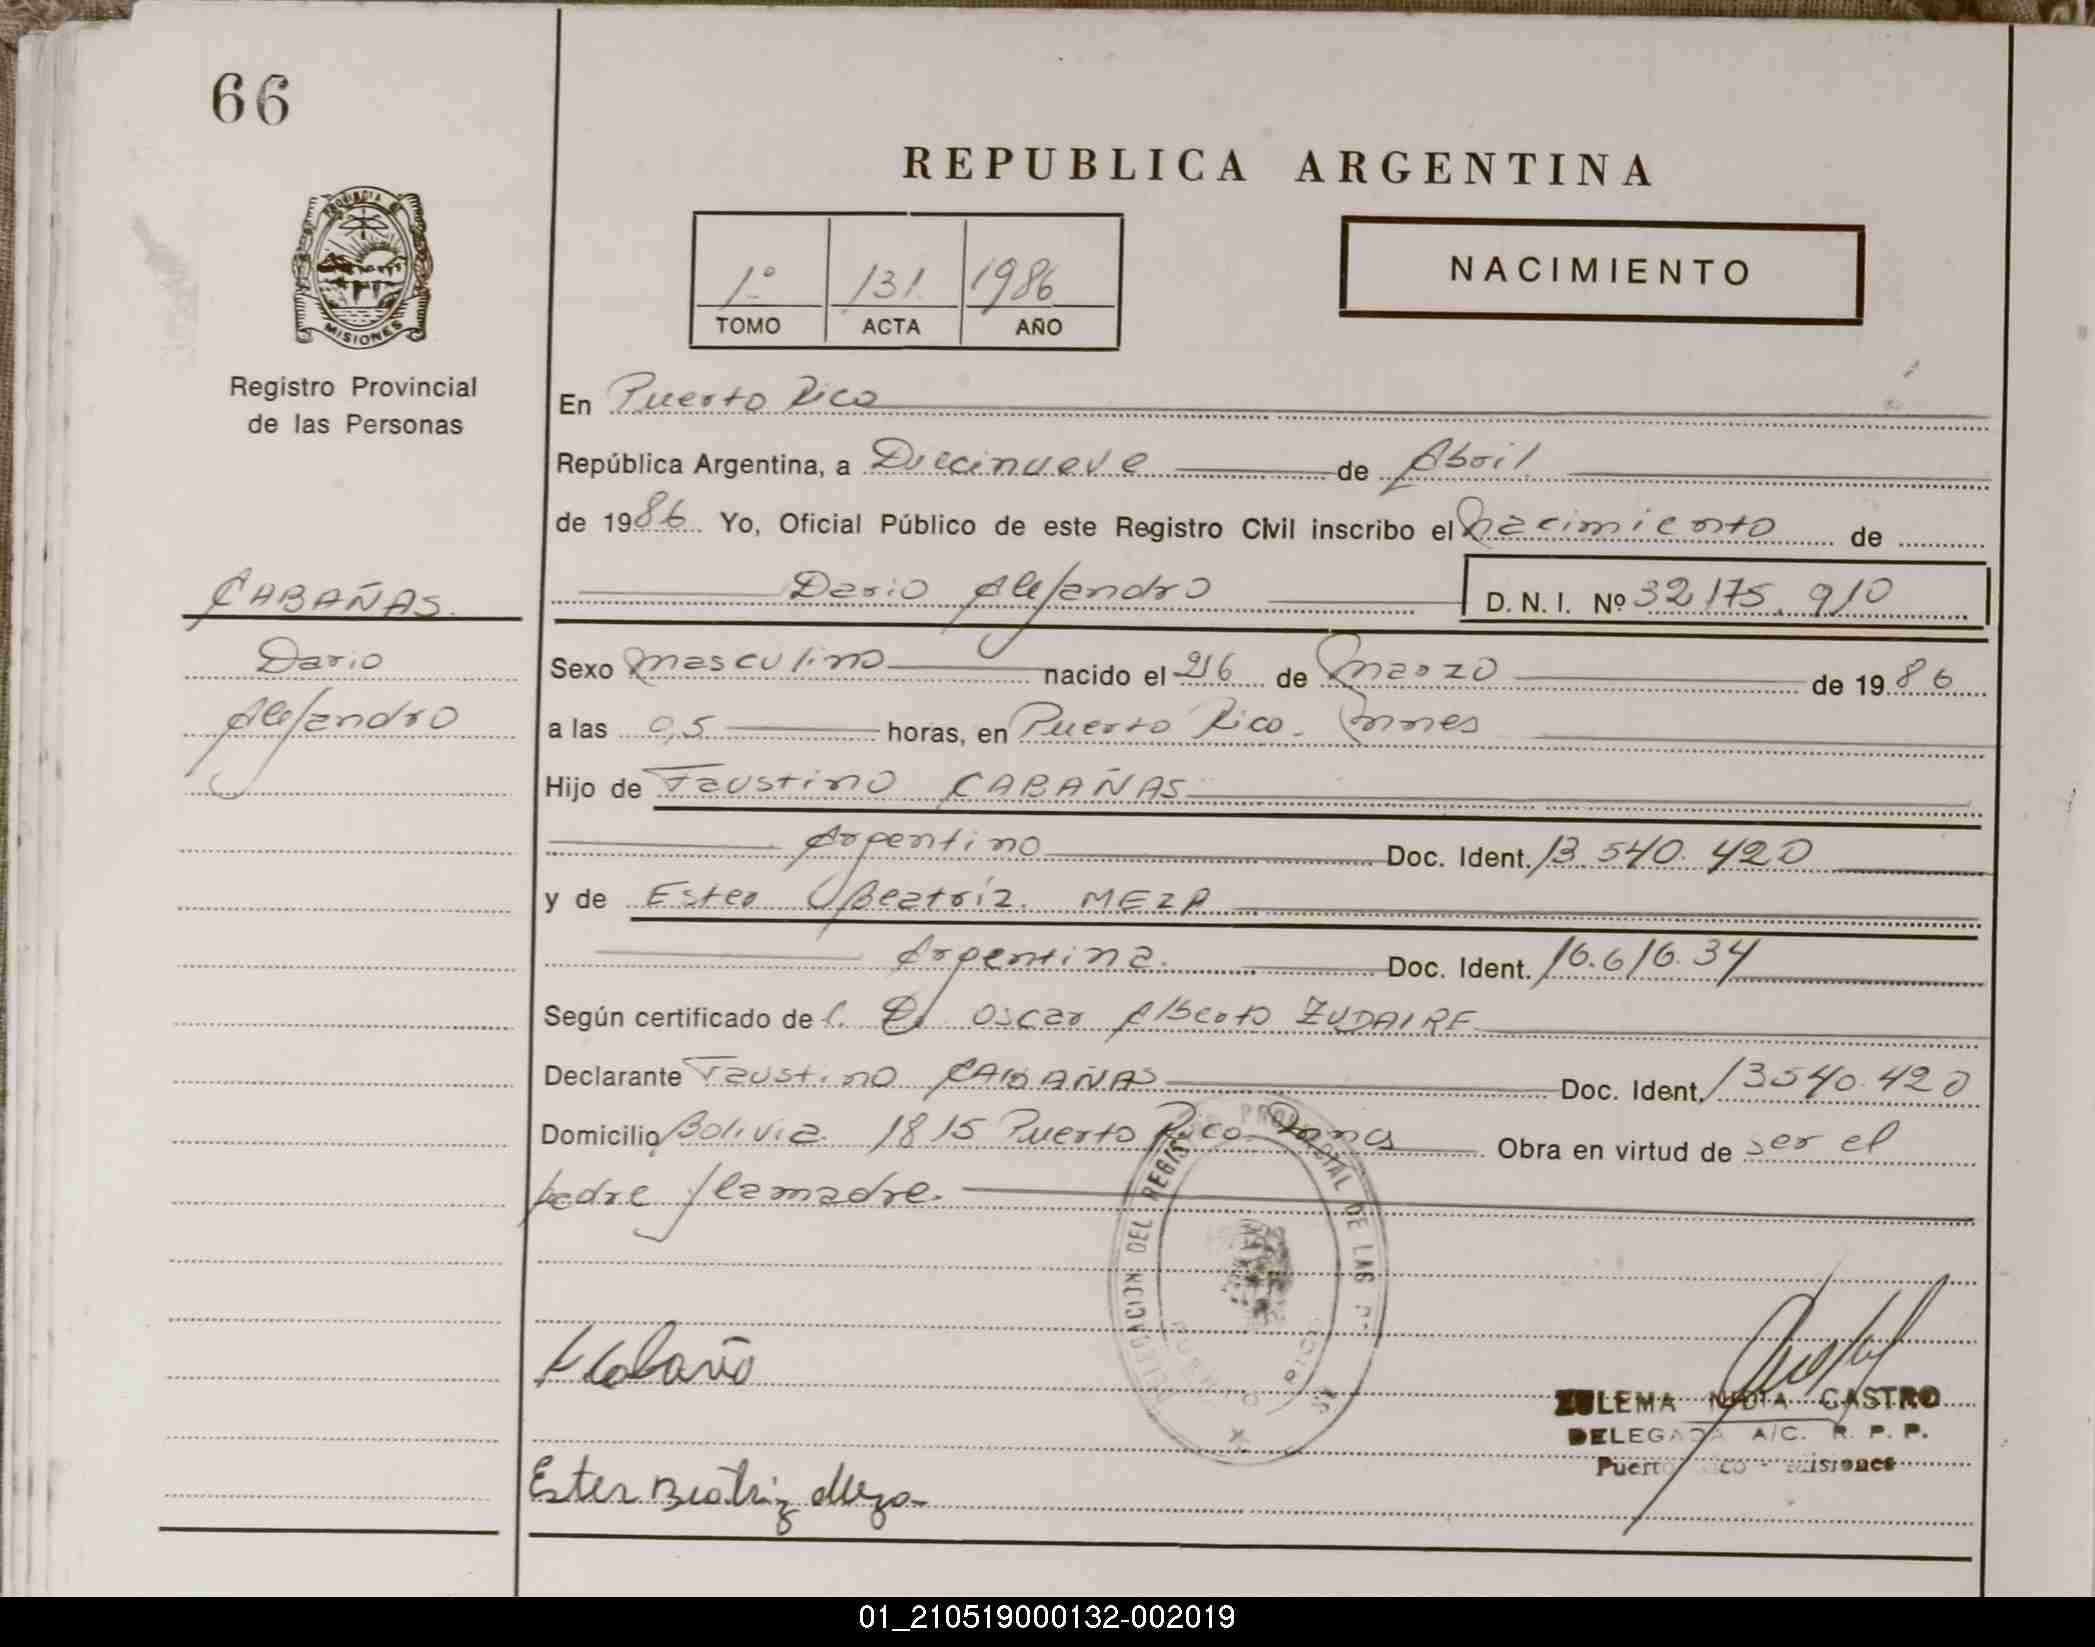 66
REPUBLICA ARGENTINA
PROVINCIA DE
MISIONES
1º 131 1986
TOMO ACTA AÑO
NACIMIENTO
Registro Provincial
de las Personas
En Puerto Rico
República Argentina, a Diecinueve de Abril
de 1986. Yo, Oficial Público de este Registro Civil inscribo el Nacimiento de
CABAÑAS.
Dario Alejandro D. N. I. Nº 32.175.910
Dario
Alejandro
Sexo masculino nacido el 26 de Marzo de 1986
a las 0,5 horas, en Puerto Rico. Mnes
Hijo de Faustino CABAÑAS
Argentino Doc. Ident. 13.540.420
y de Ester Beatríz. MEZA
Argentina. Doc. Ident. 16.616.34
Según certificado de l. Dr Oscar Alberto ZUDAIRE
Declarante Faustino CABAÑAS Doc. Ident. 13540.420
Domicilio Bolivia 1815 Puerto Rico Mnes Obra en virtud de ser el
padre y la madre.
DELEGACION DEL REGISTRO PROVINCIAL DE LAS
PUERTO
ZULEMA NIDIA CASTRO
DELEGADA A/C. R. P. P.
Puerto Rico - Misiones
Ester Beatriz Meza
01_210519000132-002019